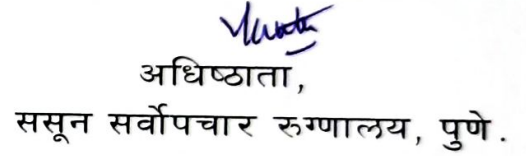 अधिष्ठाता,
ससून सर्वोपचार रुग्णालय, पुणे.